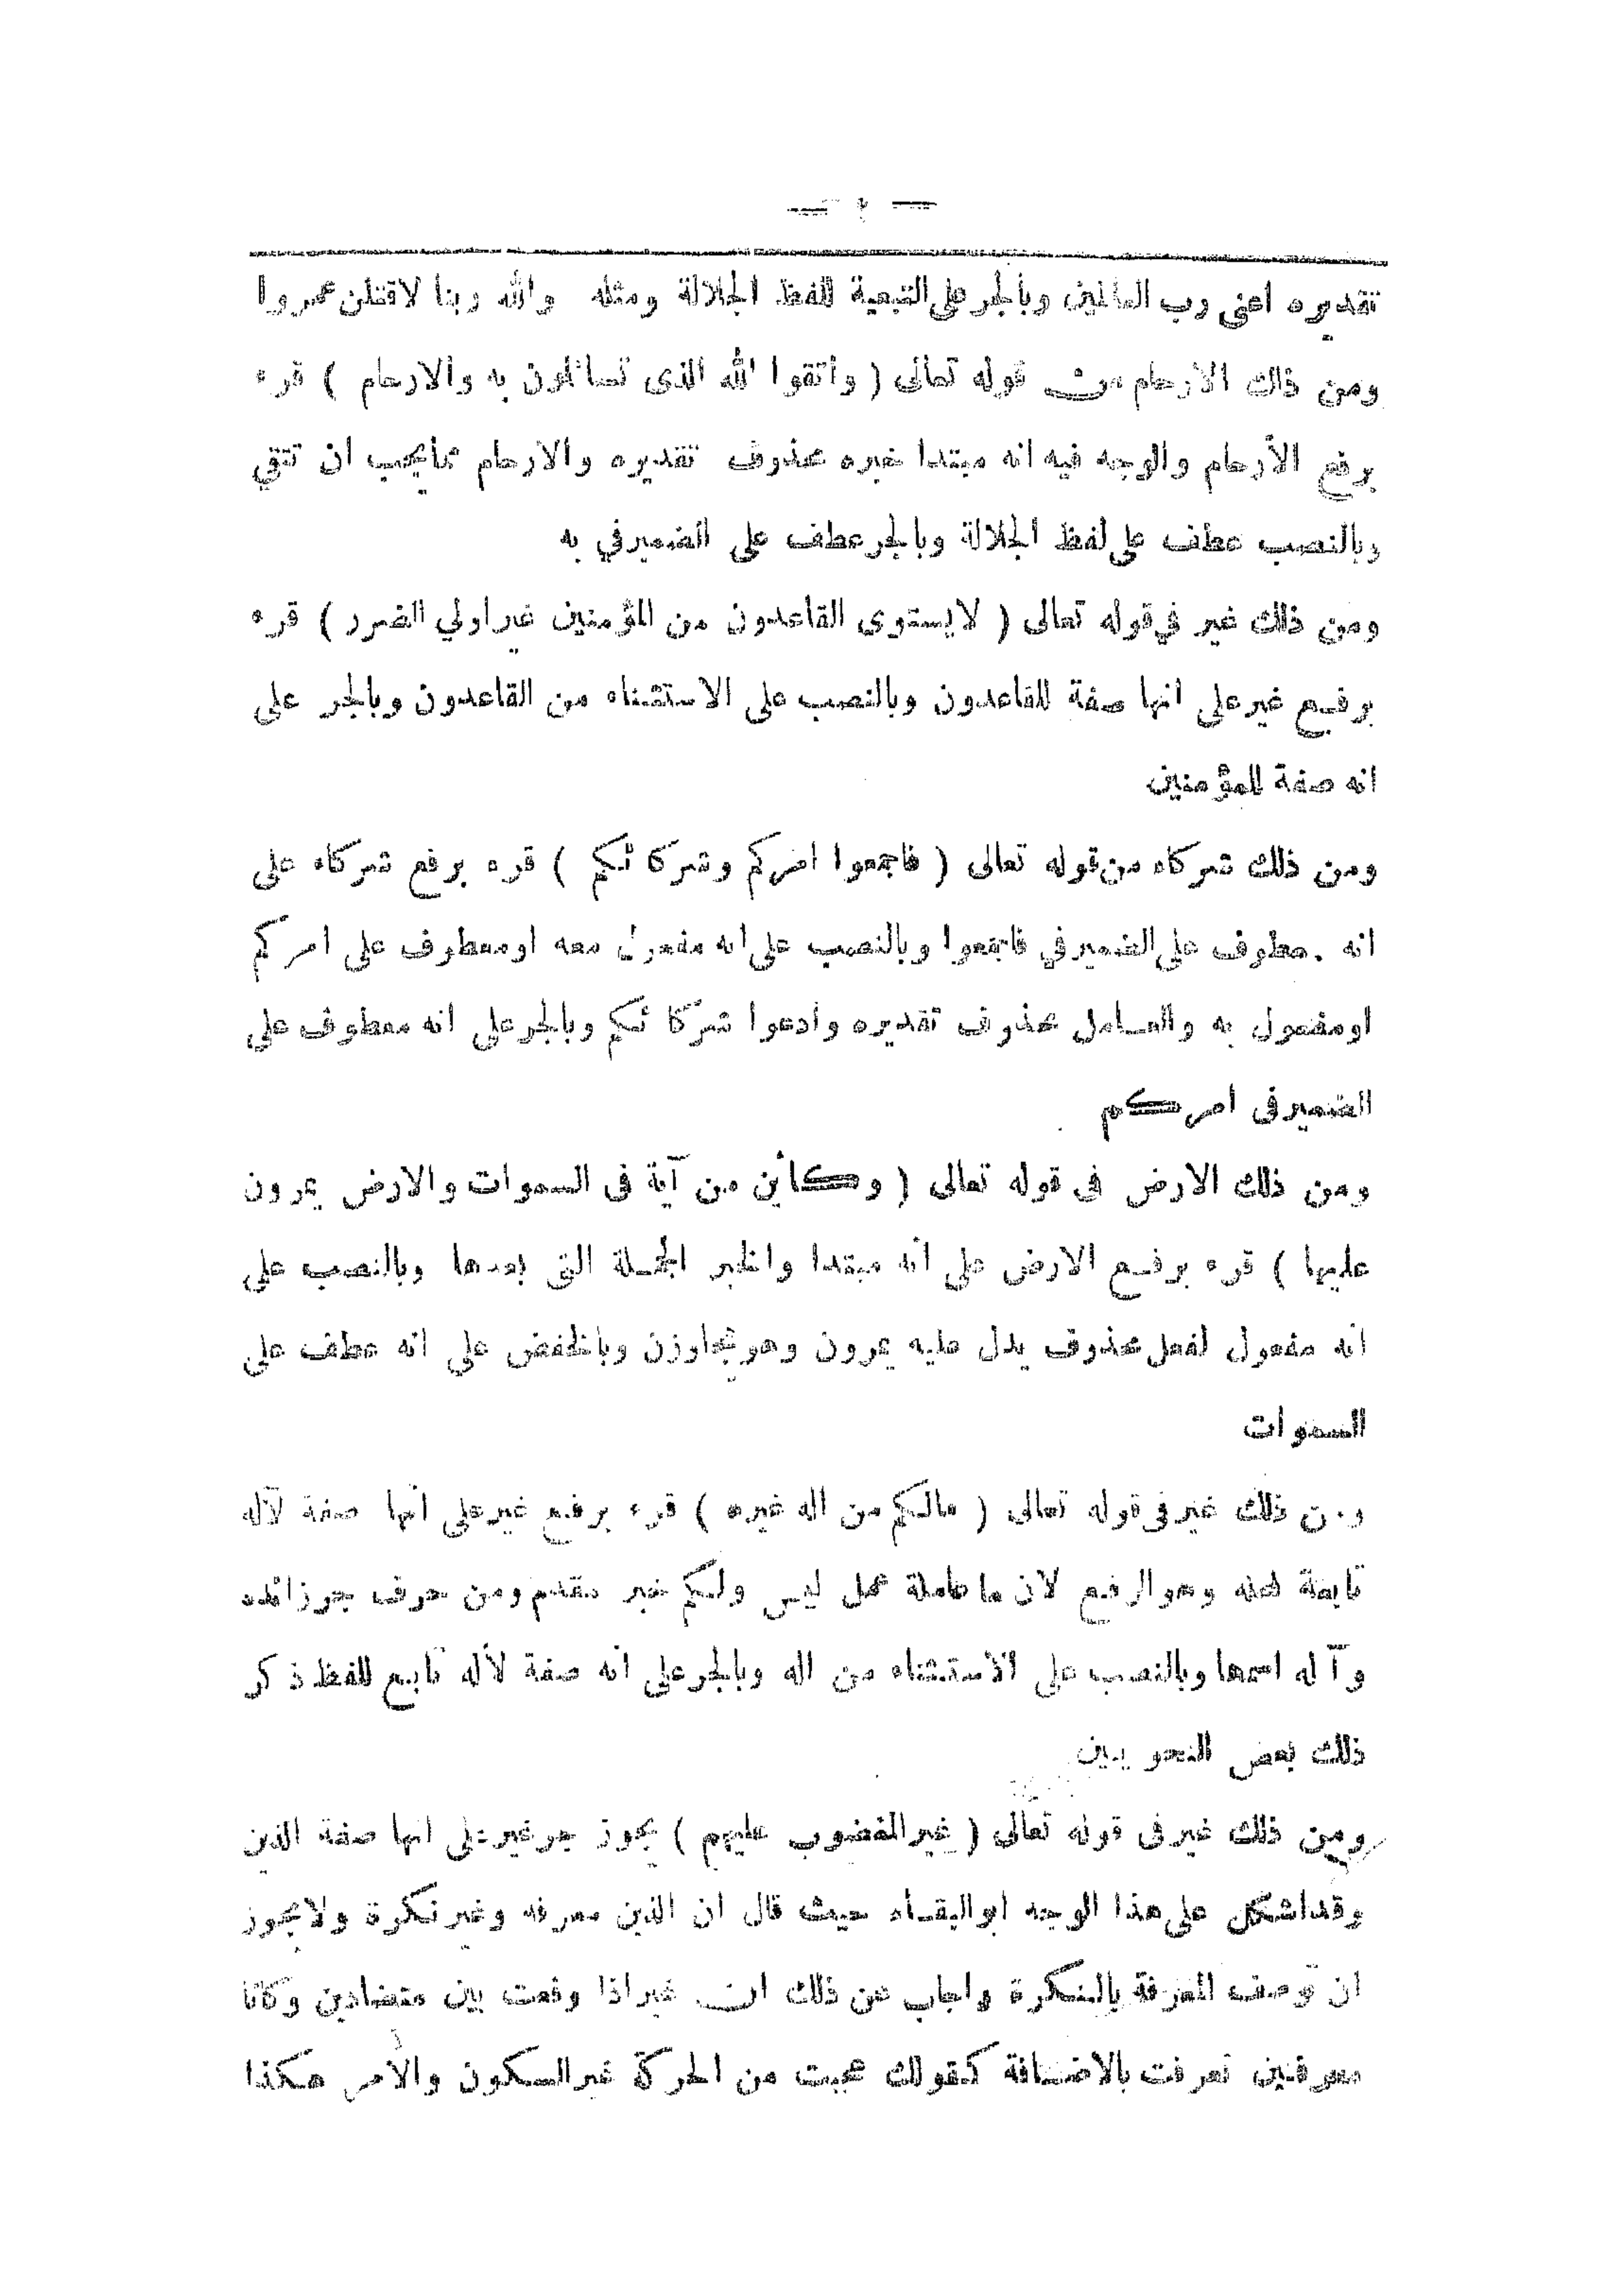 تقديره اعنى رب العالمين وبالجر على التبعية للفظ الجلالة ومثله والله ربنا لاقتلن عمروا
ومن ذلك الارحام من قوله تعالى ( واتقوا الله الذى تسائلون به والارحام ) قرء
برفع الأرحام والوجه فيه انه مبتدا خبره محذوف تقديره والارحام مما يجب ان تتقي
وبالنصب عطف على لفظ الجلالة وبالجر عطف على الضمير في به
ومن ذلك غير في قوله تعالى ( لا يستوى القاعدون من المؤمنين غير اولي الضرر ) قرء
برفع غير على انها صفة للقاعدون وبالنصب على الاستثناء من القاعدون وبالجر على
انه صفة للمؤمنين
ومن ذلك شركاء من قوله تعالى ( فاجمعوا امركم وشركائكم ) قرء برفع شركاء على
انه معطوف على الضمير في فاجمعوا وبالنصب على انه مفعول معه او معطوف على امركم
او مفعول به والعامل محذوف تقديره وادعوا شركائكم وبالجر على انه معطوف على
الضمير فى امركم
ومن ذلك الارض فى قوله تعالى ( وكأين من آية فى السموات والارض يمرون
عليها ) قرء برفع الارض على انه مبتدا والخبر الجملة التى بعدها وبالنصب على
انه مفعول لفعل محذوف يدل عليه يمرون وهو تجاوزن وبالخفض على انه عطف على
السموات
ومن ذلك غير فى قوله تعالى ( مالكم من اله غيره ) قرء برفع غير على انها صفة لآله
تابعة لمحله وهو الرفع لان ما عاملة عمل ليس ولكم خبر مقدم ومن حرف جر زائده
وآله اسمها وبالنصب على الاستثناء من اله وبالجر على انه صفة لأله تابع للفظ ذكر
ذلك بعض النحويين
ومن ذلك غير فى قوله تعالى ( غير المغضوب عليهم ) يجوز جر غير على انها صفة الذين
وقد اشكل على هذا الوجه ابو البقاء حيث قال ان الذين معرفه وغير نكرة ولا يجوز
ان توصف المعرفة بالنكرة واجاب عن ذلك ان غير اذا وقعت بين متضادين وكانا
معرفتين تعرفت بالاضافة كقولك عجبت من الحركة غير السكون والأمر هكذا